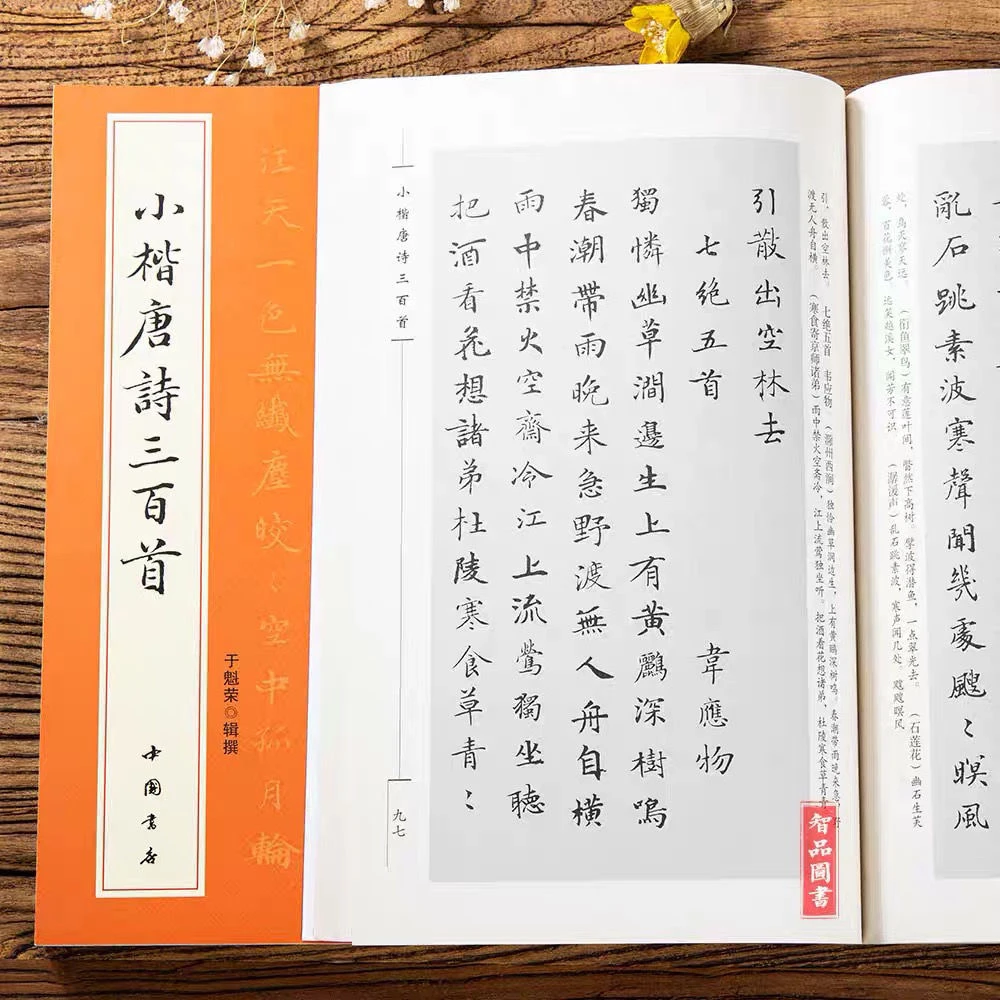 小楷唐詩三百首
中國書店
于魁荣◎辑撰
江天一色無纖塵皎々空中孤月輪
亂石跳素波寒聲聞幾處颼々暝風
(衔鱼翠鸟)有意莲叶间，瞥然下高树。擘波得潜鱼，一点翠光去。 (石莲花)幽石生芙
蓉，百花惭美色。远笑越溪女，闻芳不可识。 (潺湲声)乱石跳素波，寒声闻几处。飕飕暝风
引散出空林去
七绝五首 韋應物
獨憐幽草澗邊生上有黃鸝深樹鳴
春潮帶雨晚来急野渡無人舟自横
雨中禁火空齋冷江上流鶯獨坐聽
把酒看花想諸弟杜陵寒食草青々
引，散出空林去。 七绝五首 韦应物 (滁州西涧)独怜幽草涧边生，上有黄鹂深树鸣。春潮带雨晚来急，野
渡无人舟自横。 (寒食寄京师诸弟)雨中禁火空斋冷，江上流莺独坐听。把酒看花想诸弟，杜陵寒食草青青
小楷唐诗三百首
九七
智品圖書